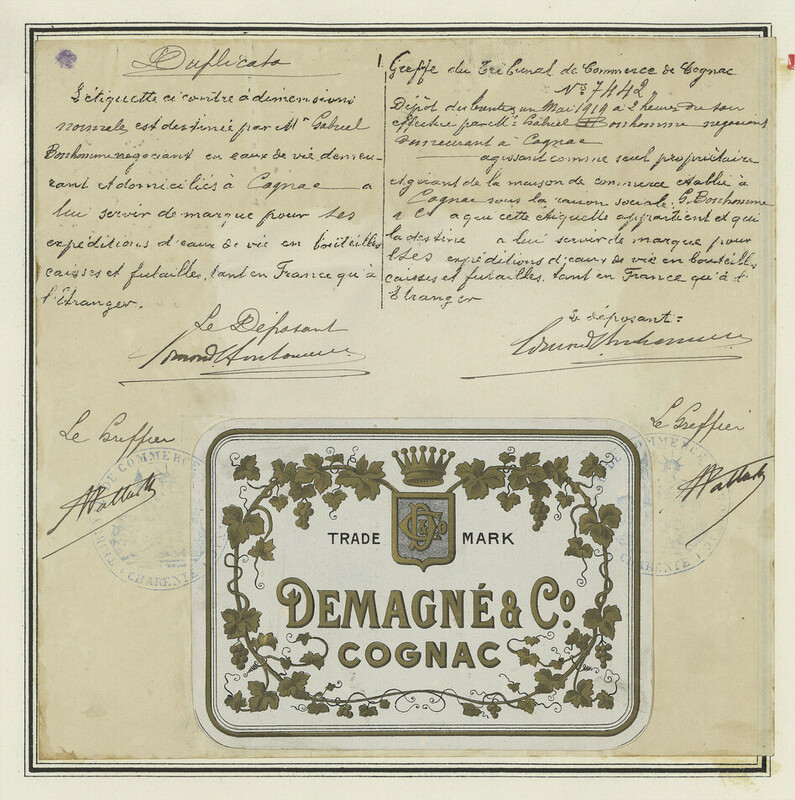 Duplicata
L'étiquette ci contre à dimensions
normale est destinée par Mr Gabriel
Bonhomme négociant en eaux de vie demeu-
rant et domiciliés à Cognac a
lui servir de marque pour ses
expéditions d'eaux de vie en bouteilles
caisses et futailles, tant en France qu'à
l'Etranger.
Le Déposant
Le Greffier
Greffe du Tribunal de Commerce de Cognac
No 7442
Dépôt du Mai 1919 à 2 heures du soir
effectué par Mr Gabriel Bonhomme négociant
demeurant à Cognac
agissant comme seul propriétaire
et gérant de la maison de commerce etablie à
Cognac sous la raison sociale G. Bonhomme
& Co a qui cette etiquette appartient et qui
la destine a lui servir de marque pour
ses expéditions d'eaux de vie en bouteilles
caisses et futailles, tant en France qu'à l'
Etranger
Le déposant:
Le Greffier
DE COMMERCE
CHARENTE
TRADE MARK
DEMAGNÉ & Co.
COGNAC